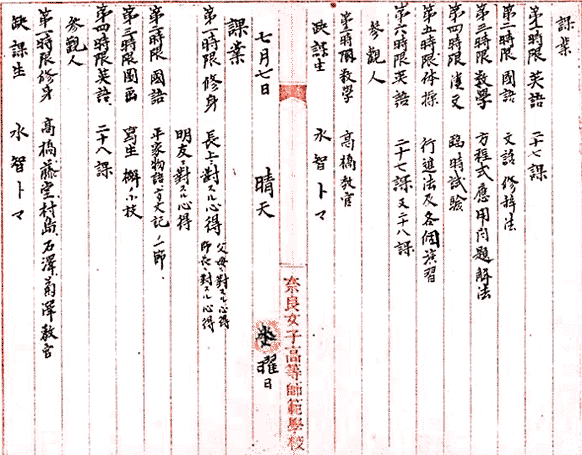 課業
第一時限 英語 二十七課
第二時限 國語 文話 修辞法
第三時限 数學 方程式應用問題解法
第四時限 漢文 臨時試驗
第五時限 体操 行進法及各個演習
第六時限 英語 二十七課又二十八課
参觀人
第三時間 数學 高橋教官
缺課生 水智トマ
奈良女子高等師範學校
七月七日 晴天 曜日
課業
第一時限 修身 長上ニ對スル心得 父母ニ對スル心得 師長ニ對スル心得
朋友ニ對スル心得
第二時限 國語 平家物語 一節
第三時限 圖画 寫生 小枝
第四時限 英語 二十八課
参觀人
第一時限修身 高橋、藤堂、村島、石澤、菊澤教官
缺課生 水智トマ